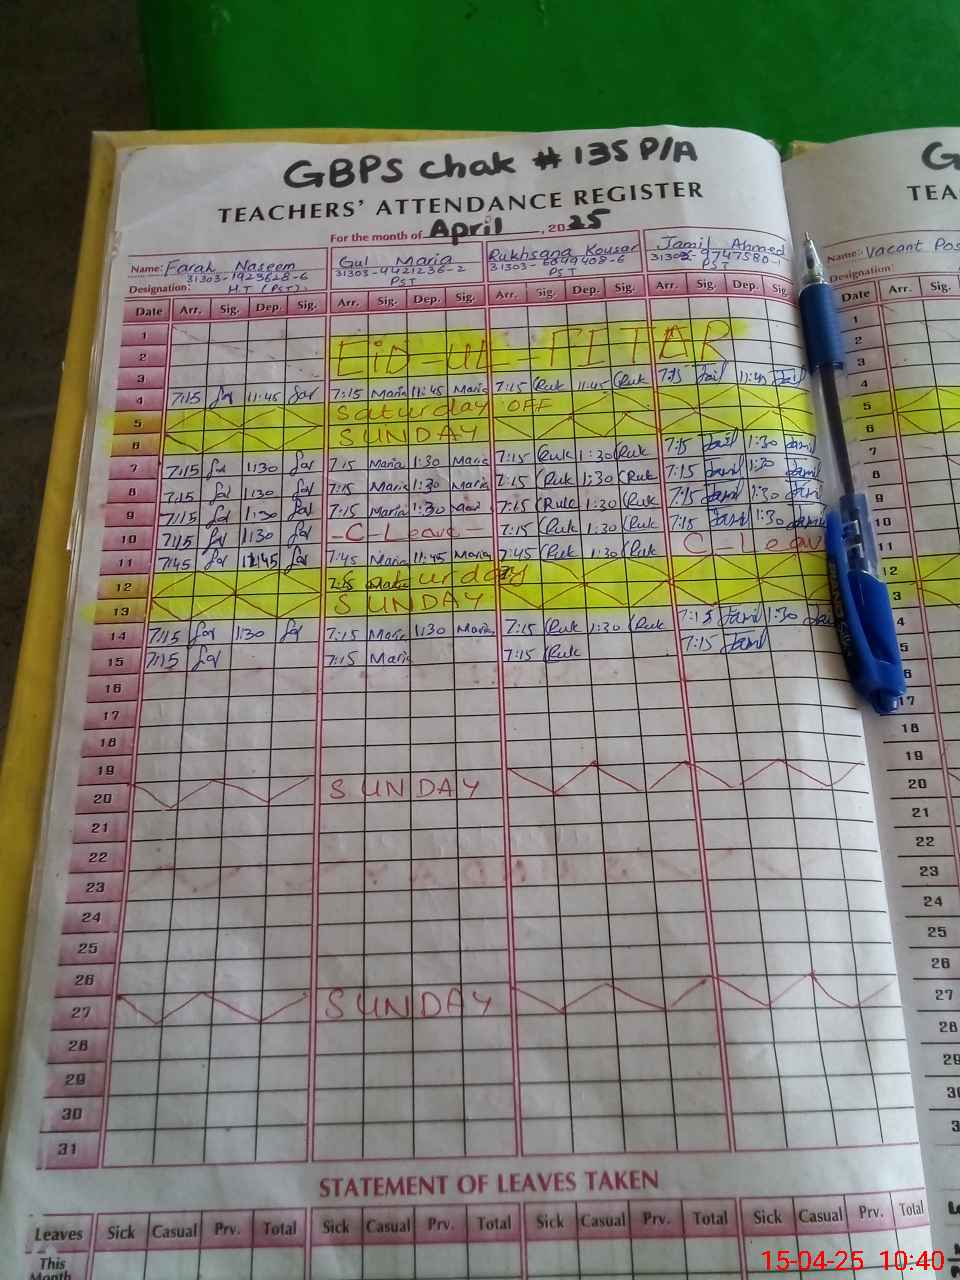 GBPS Chak # 135 P/A
TEACHERS' ATTENDANCE REGISTER
For the month of April, 2025
Name: Farah Naseem Gul Maria Rukhsana Kousar Jamil Ahmed
31303-1923628-6 31303-4421236-2
Designation: H.T (PST). PST PST PST
Date Arr. Sig. Dep. Sig. Arr. Sig. Dep. Sig. Arr. Sig. Dep. Sig. Arr. Sig. Dep. Sig.
1
2 EiD-UL-FITAR
3
4 7:15 11:45 7:15 Maria 11:45 Maria 7:15 Ruk 11:45 Ruk 7:15 11:45
5 Saturday OFF
6 SUNDAY
7 7:15 1:30 7:15 Maria 1:30 Maria 7:15 Ruk 1:30 Ruk 7:15 Jamil 1:30 Jamil
8 7:15 1:30 7:15 Maria 1:30 Maria 7:15 Ruk 1:30 Ruk 7:15 Jamil 1:30 Jamil
9 7:15 1:30 7:15 Maria 1:30 7:15 Ruk 1:30 Ruk 7:15 Jamil 1:30 Jamil
10 7:15 1:30 -C-Leave- 7:15 Ruk 1:30 Ruk 7:15 Jamil 1:30 Jamil
11 7:45 11:45 7:45 Maria 11:45 Maria 7:45 Ruk 1:30 Ruk C-Leav
12 urday
13 SUNDAY
14 7:15 1:30 7:15 Maria 1:30 Maria 7:15 Ruk 1:30 Ruk 7:15 Jamil 1:30
15 7:15 7:15 Maria 7:15 Ruk 7:15 Jamil
16
17
18
19
20 SUNDAY
21
22
23
24
25
26
27 SUNDAY
28
29
30
31
STATEMENT OF LEAVES TAKEN
Leaves Sick Casual Prv. Total Sick Casual Prv. Total Sick Casual Prv. Total Sick Casual Prv. Total
This
Month
G
TEA
Name: Vacant Pos
Designation:
Date Arr. Sig.
1
2
3
4
5
6
7
8
9
10
11
12
3
4
5
6
17
18
19
20
21
22
23
24
25
26
27
28
29
3
3
15-04-25 10:40